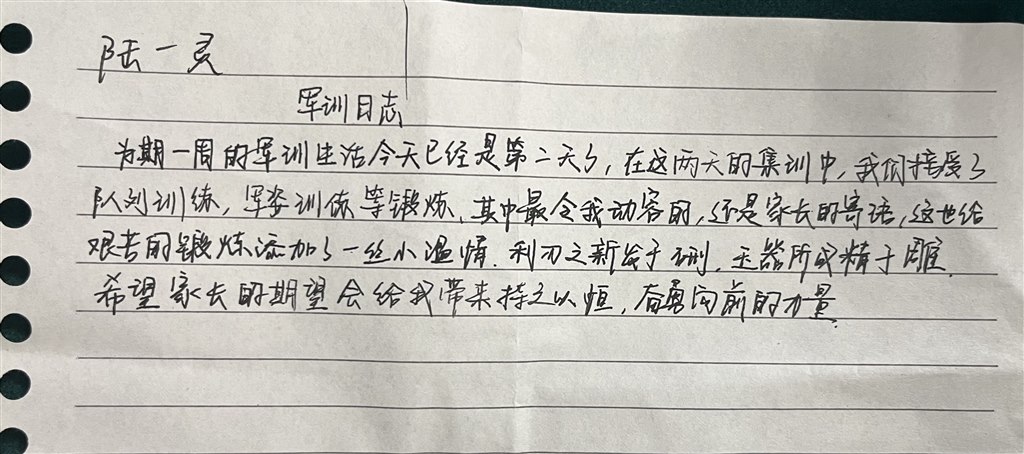 陆一灵
军训日志
为期一周的军训生活今天已经是第二天了，在这两天的集训中，我们接受了
队列训练，军姿训练等锻炼，其中最令我动容的，还是家长的寄语，这也给
艰苦的锻炼添加了一丝小温情。利刃之新发于硎，玉器所成精于雕。
希望家长的期望会给我带来持之以恒，奋勇向前的力量。